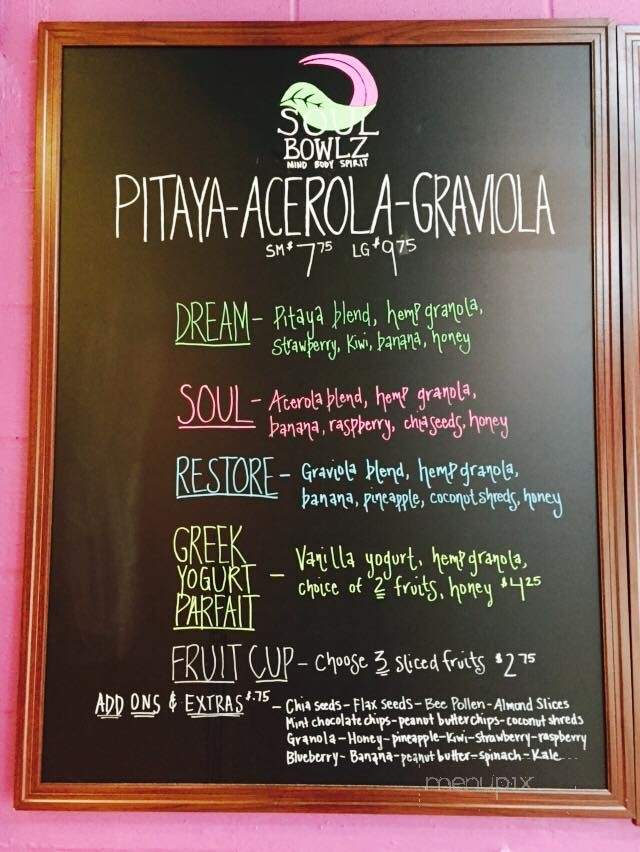 SOUL
BOWLZ
MIND BODY SPIRIT
PITAYA-ACEROLA-GRAVIOLA
SM $7.75 LG $9.75
DREAM - Pitaya blend, hemp granola,
strawberry, kiwi, banana, honey
SOUL - Acerola blend, hemp granola,
banana, raspberry, chia seeds, honey
RESTORE - Graviola blend, hemp granola,
banana, pineapple, coconut shreds, honey
GREEK
YOGURT
PARFAIT
- Vanilla yogurt, hemp granola,
choice of 2 fruits, honey $4.25
FRUIT CUP - Choose 3 sliced fruits $2.75
ADD ONS & EXTRAS $.75 - Chia seeds - Flax Seeds - Bee Pollen - Almond Slices
Mint chocolate chips - peanut butter chips - coconut shreds
Granola - Honey - pineapple - Kiwi - Strawberry - raspberry
Blueberry - Banana - peanut butter - spinach - Kale...
menupix